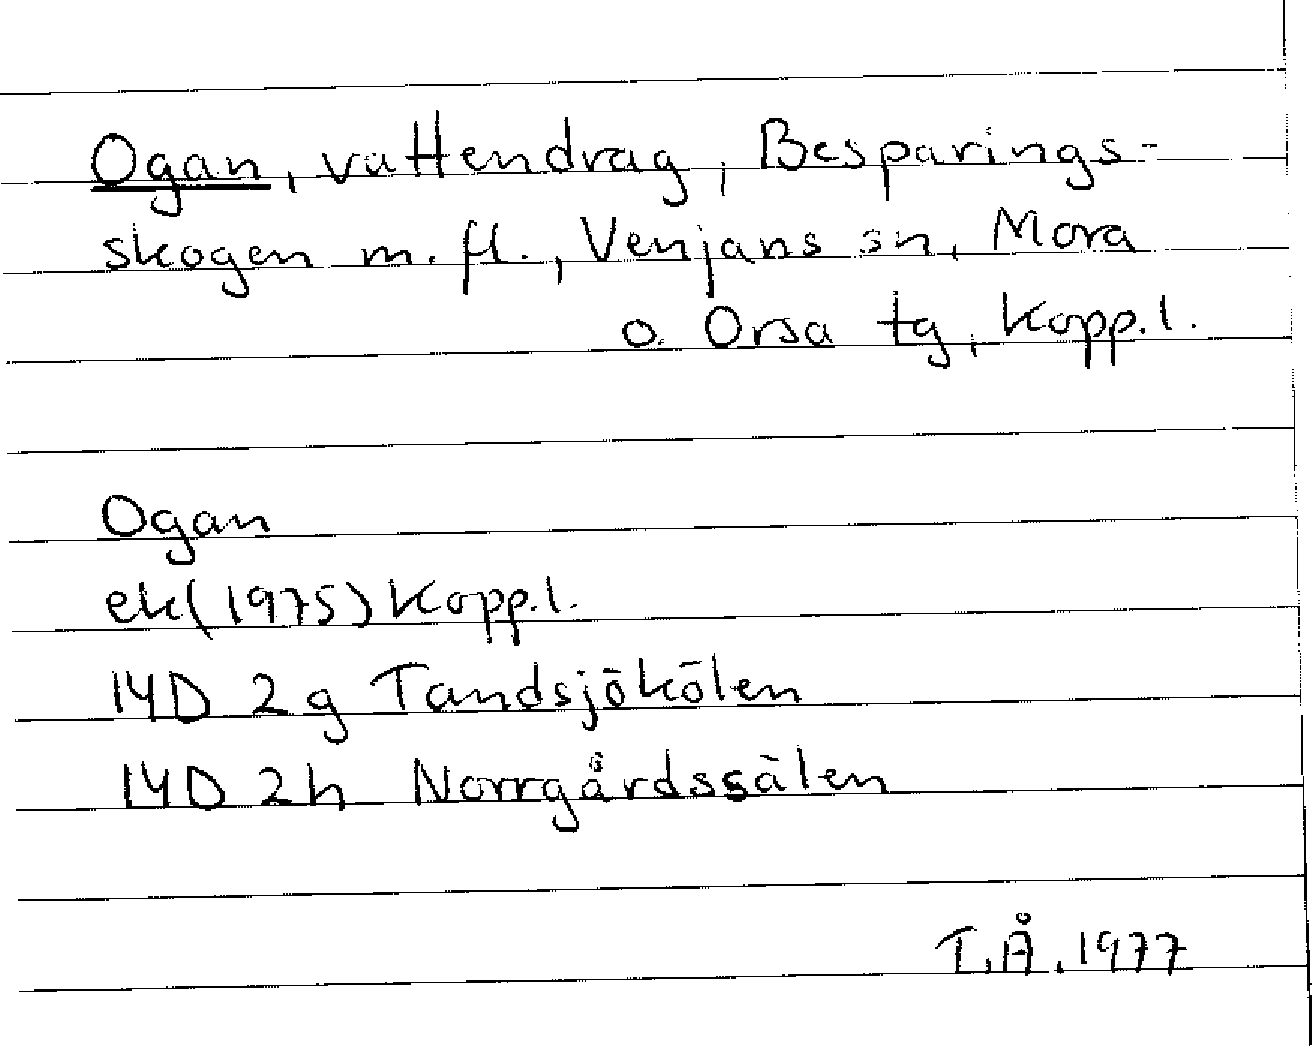 Ogan, vattendrag, Besparings-
skogen m. fl., Venjans sn, Mora
o. Orsa tg, Kopp.l.
Ogan
ek(1975) Kopp.l.
14D 2g Tandsjökölen
14D 2h Norrgårdssälen
T.Å. 1977